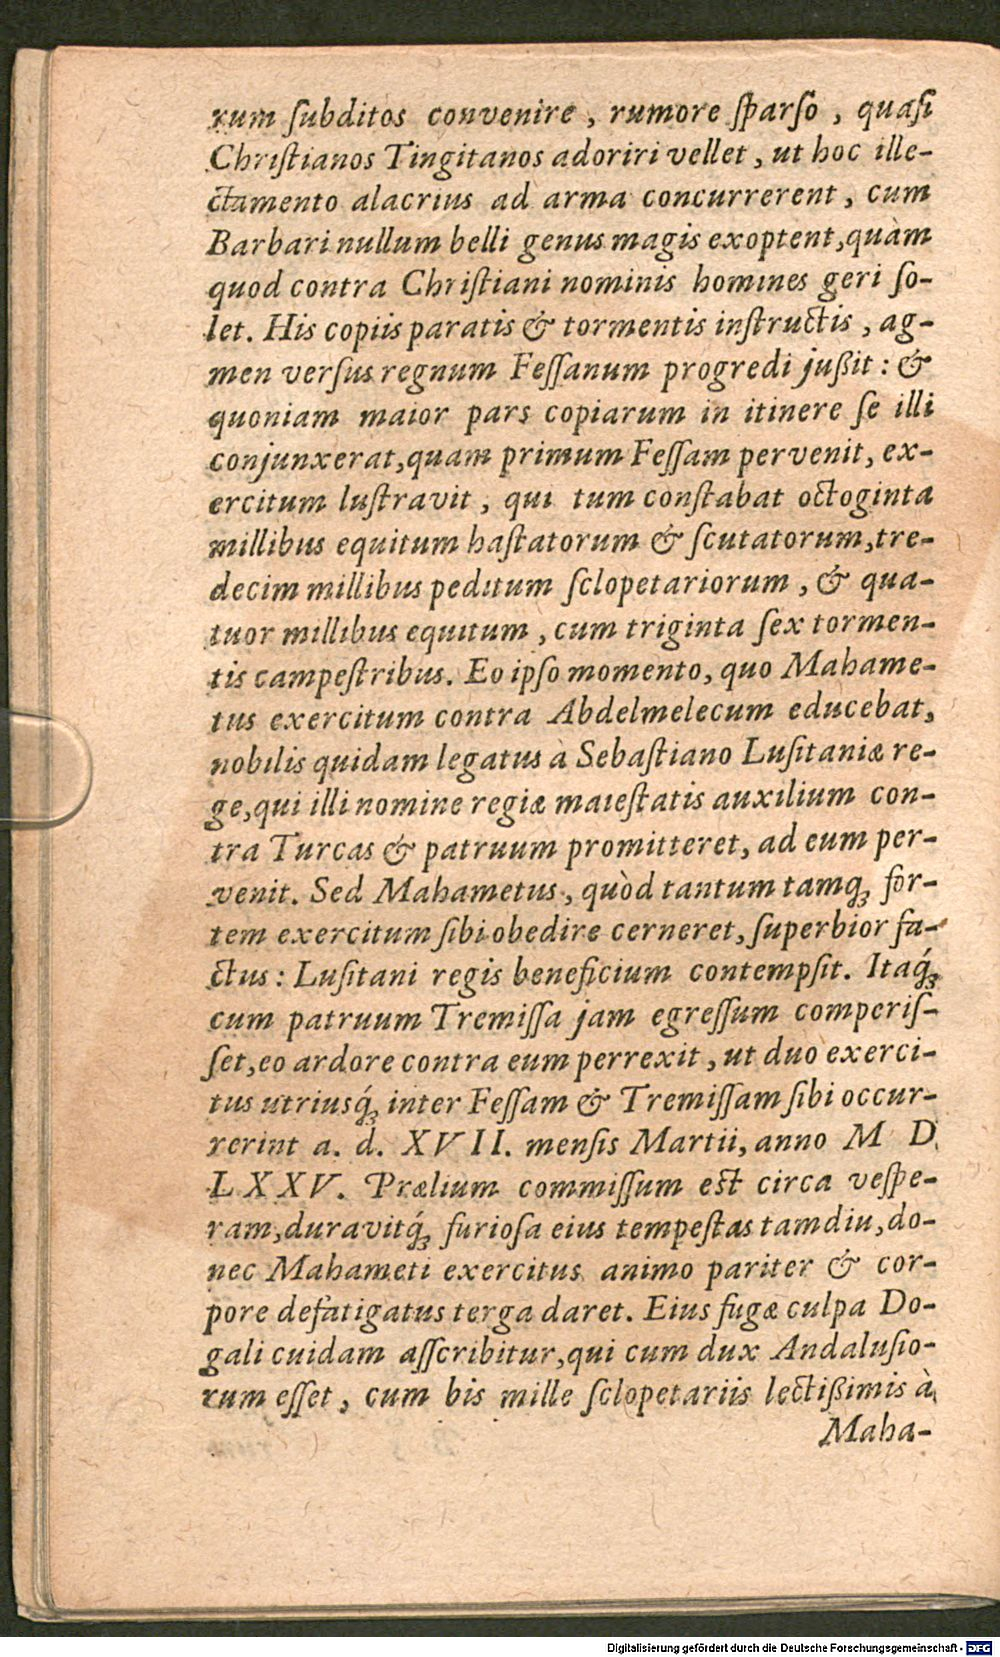 rum ſubditos convenire, rumore ſparſo, quaſi
Chriſtianos Tingitanos adoriri vellet, ut hoc ille-
ctamento alacrius ad arma concurrerent, cum
Barbari nullum belli genus magis exoptent, quàm
quod contra Chriſtiani nominis homines geri ſo-
let. His copiis paratis & tormentis inſtructis, ag-
men verſus regnum Feſſanum progredi jußit: &
quoniam maior pars copiarum in itinere ſe illi
conjunxerat, quam primum Feſſam pervenit, ex-
ercitum luſtravit, qui tum conſtabat octoginta
millibus equitum haſtatorum & ſcutatorum, tre-
decim millibus peditum ſclopetariorum, & qua-
tuor millibus equitum, cum triginta ſex tormen-
tis campeſtribus. Eo ipſo momento, quo Mahame-
tus exercitum contra Abdelmelecum educebat,
nobilis quidam legatus à Sebaſtiano Luſitaniæ re-
ge, qui illi nomine regiæ maieſtatis auxilium con-
tra Turcas & patruum promitteret, ad eum per-
venit. Sed Mahametus, quòd tantum tamq́ꝫ for-
tem exercitum ſibi obedire cerneret, ſuperbior fa-
ctus: Luſitani regis beneficium contempſit. Itaq́ꝫ
cum patruum Tremiſſa jam egreſſum comperiſ-
ſet, eo ardore contra eum perrexit, ut duo exerci-
tus utriusq́ꝫ inter Feſſam & Tremiſſam ſibi occur-
rerint a. d. XVII. menſis Martii, anno M D
LXXV. Prælium commiſſum eſt circa veſpe-
ram, duravitq́ꝫ furioſa eius tempeſtas tamdiu, do-
nec Mahameti exercitus animo pariter & cor-
pore defatigatus terga daret. Eius fugæ culpa Do-
gali cuidam aſſcribitur, qui cum dux Andaluſio-
rum eſſet, cum bis mille ſclopetariis lectißimis à
Maha-
Digitalisierung gefördert durch die Deutsche Forschungsgemeinschaft - DFG